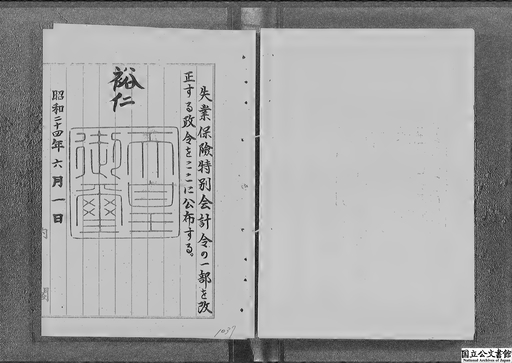 失業保險特別会計令の一部を改
正する政令をここに公布する。
裕仁
天皇
御璽
昭和二十四年六月一日
内
閣
1037
国立公文書館
National Archives of Japan